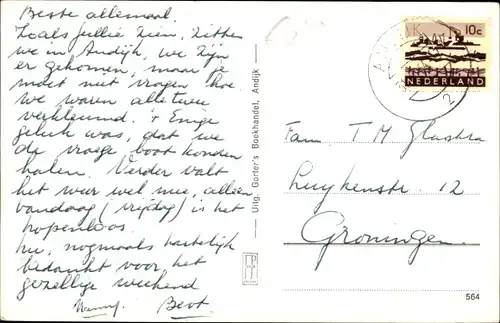 Beste allemaal.
Zoals jullie zien, zitten
we in Andijk, we zijn
er gekomen, maar je
moet niet vragen hoe
we waren alle twee
verkleumd. 't Enige
geluk was, dat we
de vroege boot konden
halen. Verder valt
het weer wel mee, alleen
vandaag (vrijdag) is het
hopenloos.
Nu, nogmaals hartelijk
bedankt voor het
gezellige weekend
Bert.
Uitg. Gorter's Boekhandel, Andijk
10c
NEDERLAND
Fam. T M Glastra
Luykenstr. 12
Groningen.
564